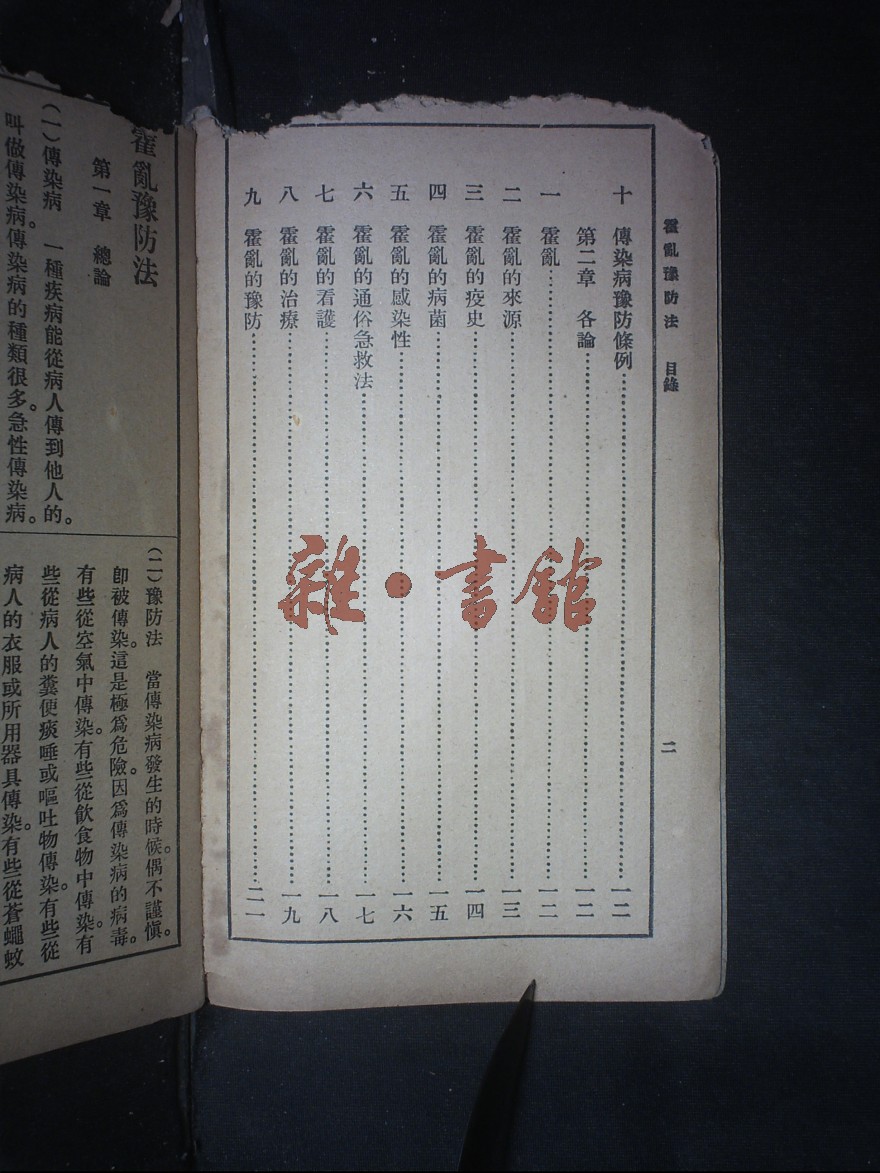 霍亂豫防法 目錄
二
十 傳染病豫防條例 一二
第二章 各論 一二
一 霍亂 一二
二 霍亂的來源 一三
三 霍亂的疫史 一四
四 霍亂的病菌 一五
五 霍亂的感染性 一六
六 霍亂的通俗急救法 一七
七 霍亂的看護 一八
八 霍亂的治療 一九
九 霍亂的豫防 二一
雜·書館
霍亂豫防法
第一章 總論
(一)傳染病 一種疾病能從病人傳到他人的。
叫做傳染病。傳染病的種類很多。急性傳染病。
(二)豫防法 當傳染病發生的時候。偶不謹愼。
卽被傳染。這是極爲危險。因爲傳染病的病毒。
有些從空氣中傳染。有些從飲食物中傳染。有
些從病人的糞便痰唾或嘔吐物傳染。有些從
病人的衣服或所用器具傳染。有些從蒼蠅蚊